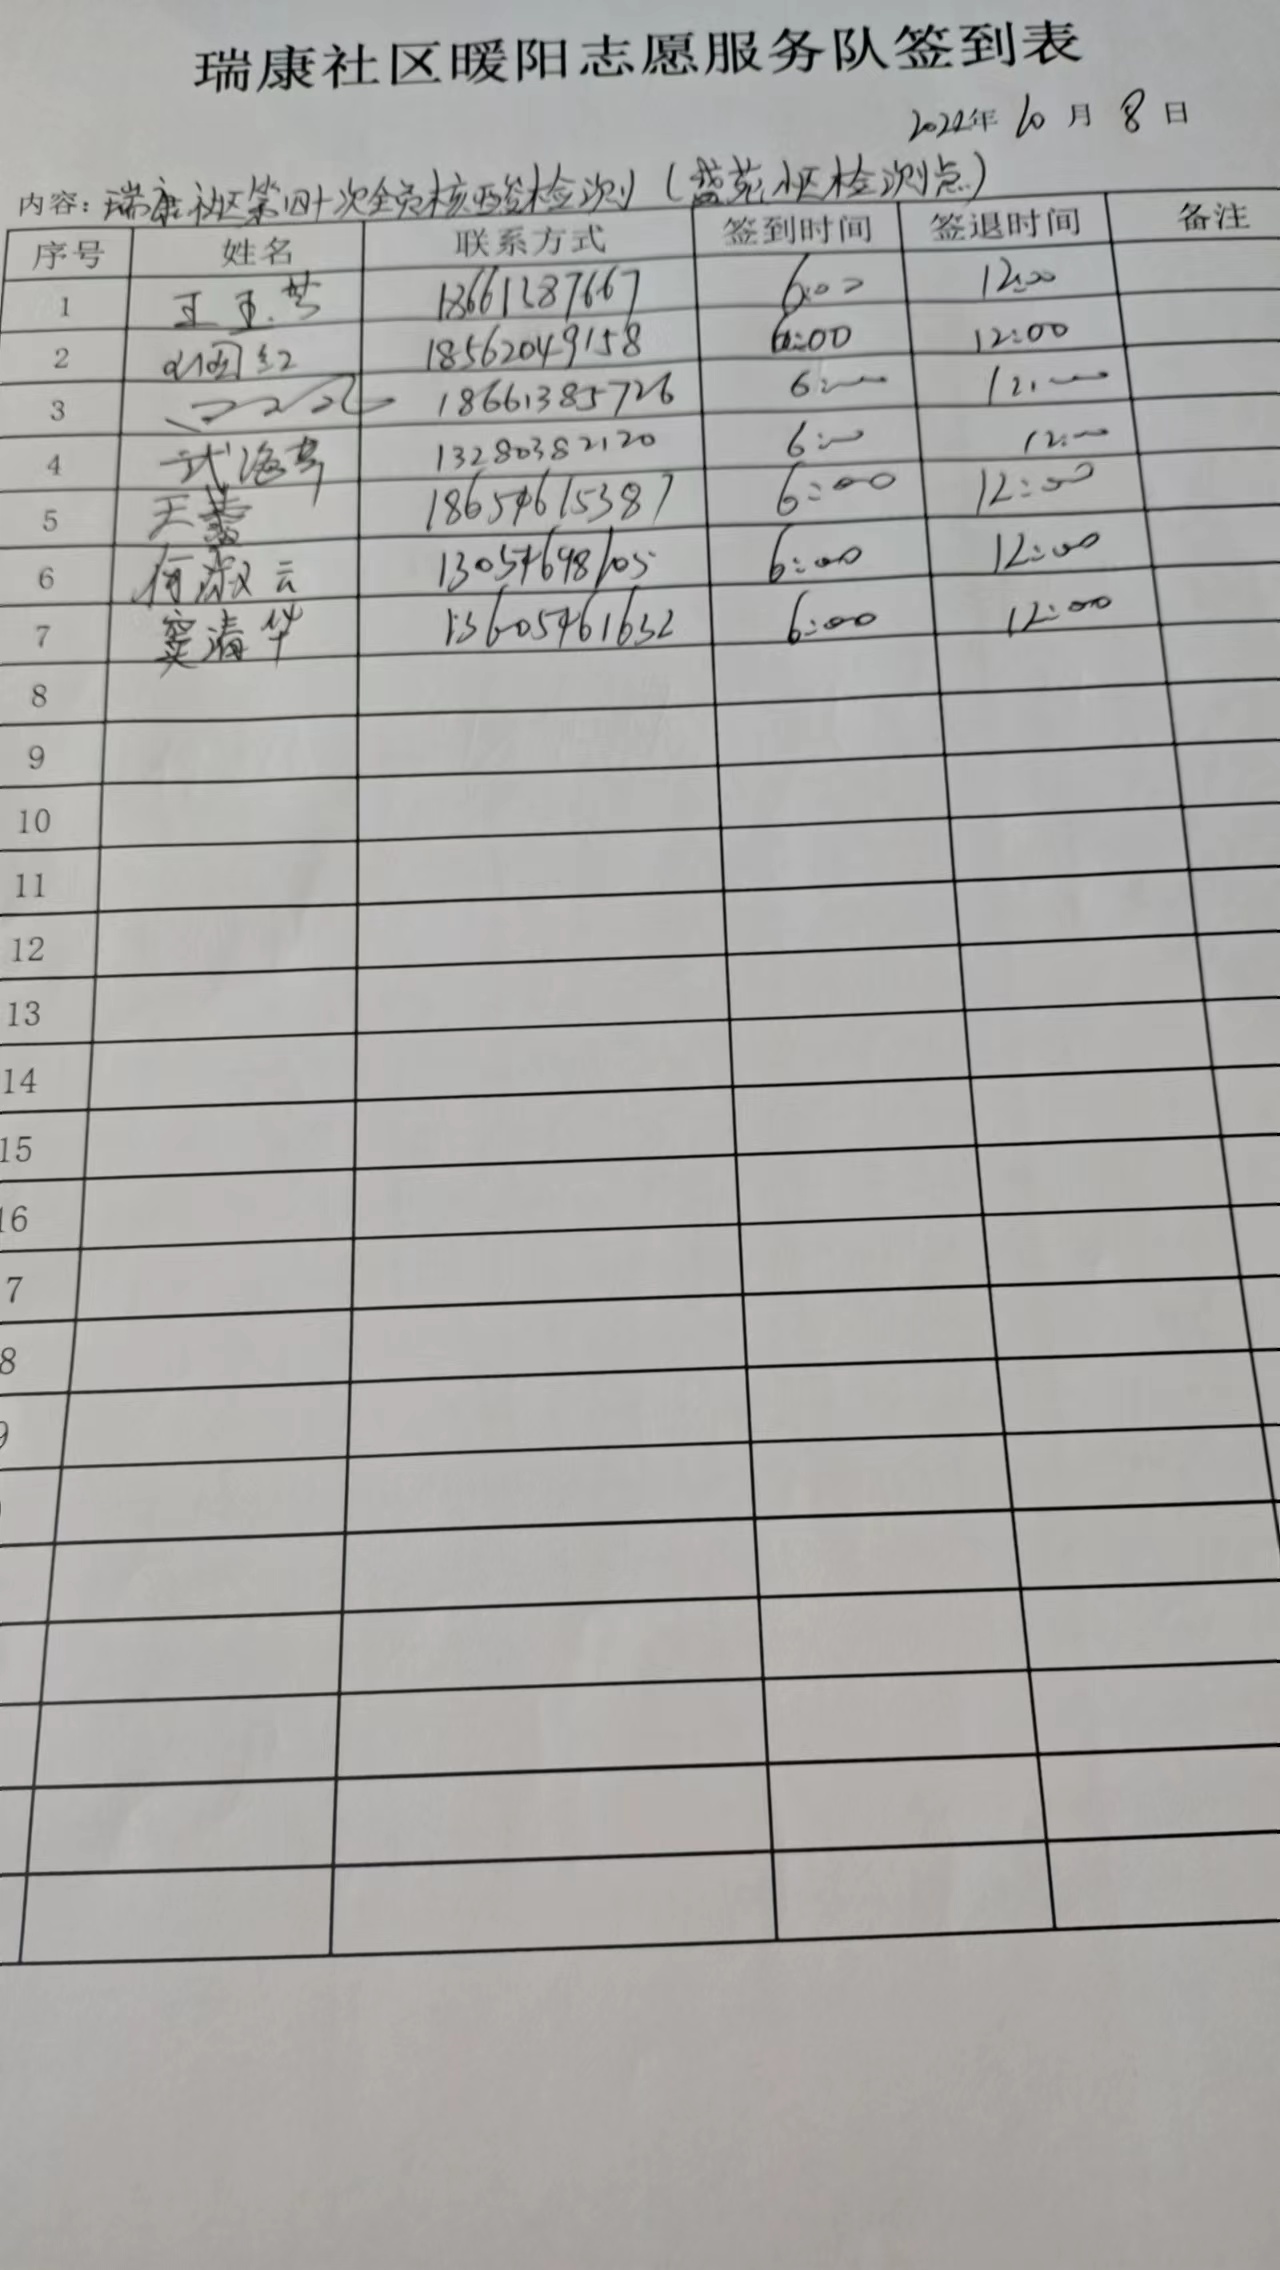 瑞康社区暖阳志愿服务队签到表
2022年 10 月 8 日
内容：瑞康社区第四十次全员核酸检测（盛苑小区检测点）
序号 姓名 联系方式 签到时间 签退时间 备注
1 王玉芳 18661287667 6:00 12:00
2 18562049158 6:00 12:00
3 18661385726 6:00 12:00
4 武海燕 13280382120 6:00 12:00
5 18654615387 6:00 12:00
6 何淑云 13054698105 6:00 12:00
7 窦清华 13605461632 6:00 12:00
8
9
10
11
12
13
14
15
16
7
8
9